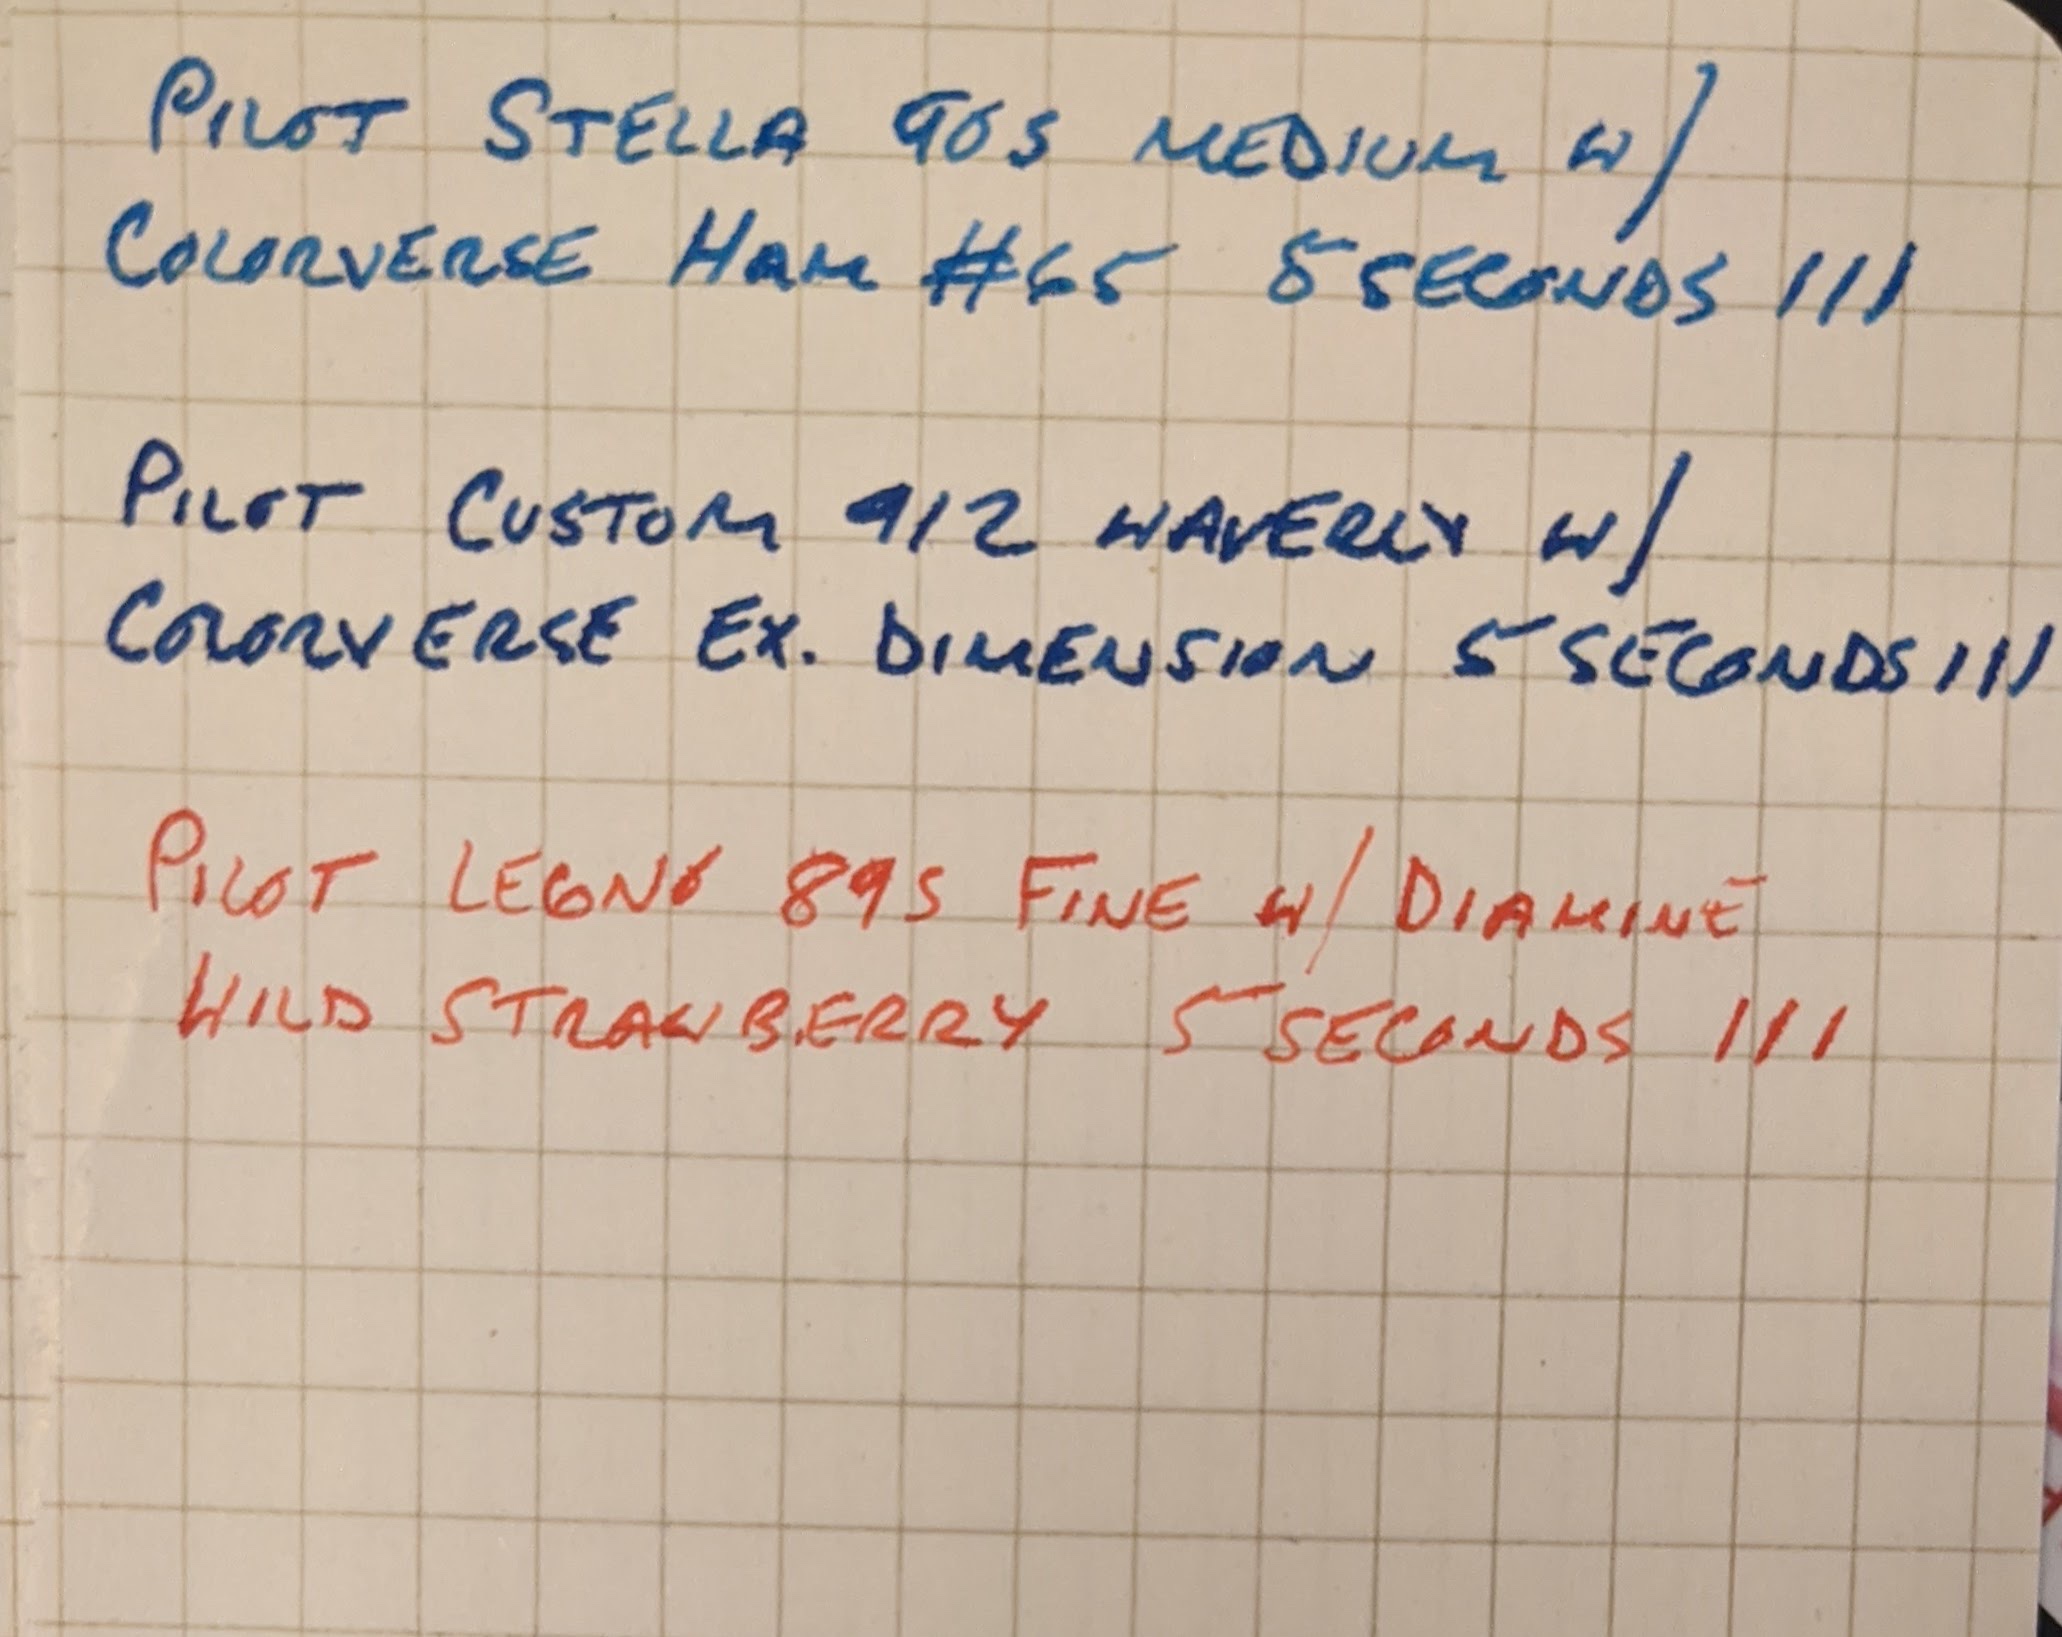 PILOT STELLA 90S MEDIUM W/
COLORVERSE HAM #65 5 SECONDS ///
PILOT CUSTOM 912 WAVERLY W/
COLORVERSE EX. DIMENSION 5 SECONDS ///
PILOT LEGNO 89S FINE W/ DIAMINE
WILD STRAWBERRY 5 SECONDS ///